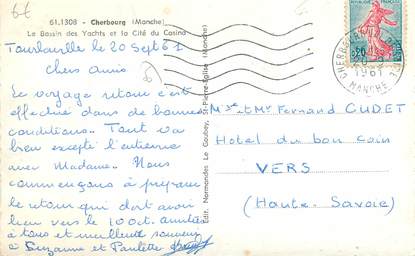 6€
61.1308 - Cherbourg (Manche)
Le Bassin des Yachts et la Cité du Casino
Tourlaville le 20 Sept 61
Chers amis
Le voyage retour c'est
effectué dans de bonnes
conditions. Tout va
bien excepté l'entorse
avec Madame. Nous
commençons à préparer
le retour qui doit avoir
lieu vers le 10 Oct. Amitiés
à tous et meilleurs souvenirs
à Suzanne et Paulette
Edit. Normandes Le Goubey, St-Pierre-Eglise (Manche)
CHERBOURG
20-9
1961
MANCHE
0,20
Mme et Mr Fernand CUDET
Hotel du bon coin
VERS
(Haute-Savoie)